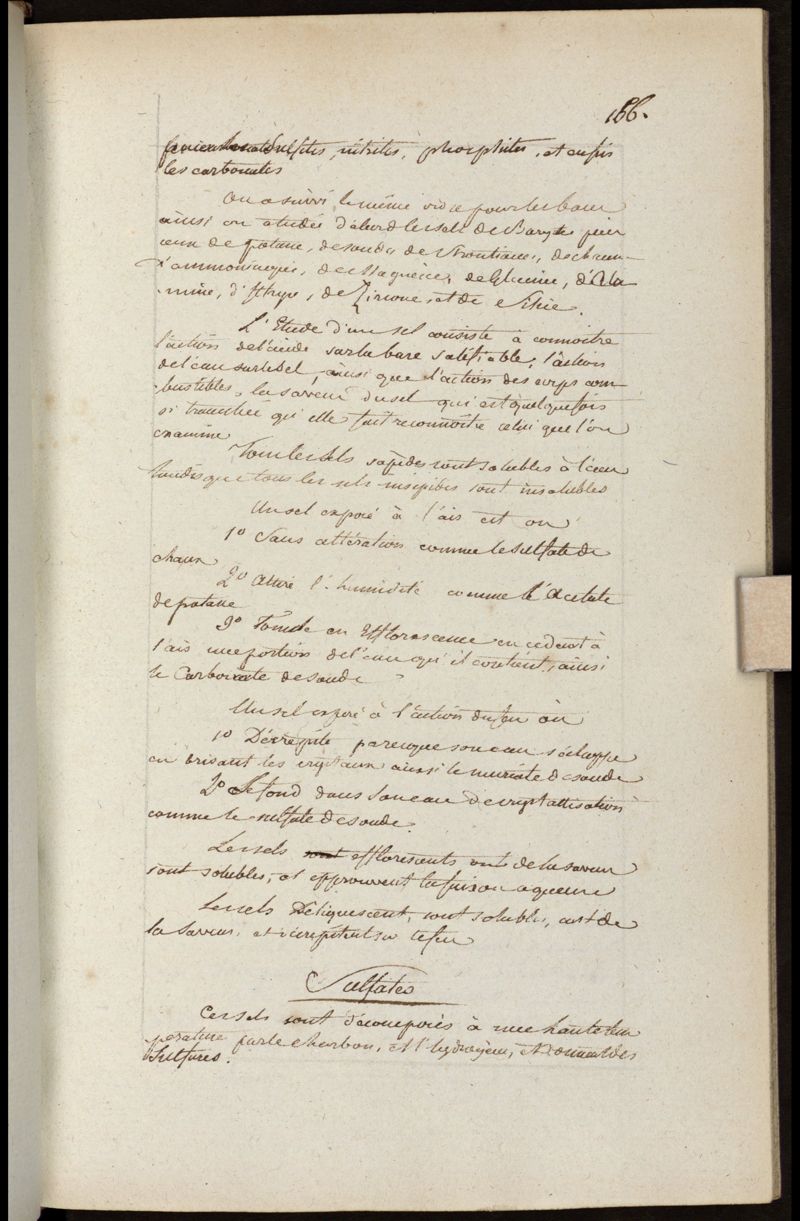 166.
sulfites, nitrites, phosphites, et enfin
les carbonates
On a suivi le même ordre pour les bases
ainsi on etudie d'abord les sels de Baryte puis
ceux de potasse, de soude, de Strontiane, de chaux
d'ammoniaque, de Magnésie, de Glucine, d'Alu
mine, d'Ittrya, de Zircone, et de
L'Etude d'un sel consiste à connoitre
l'action de l'acide sur la base salifiable, l'action
de l'eau sur le sel, ainsi que l'action des corps com-
bustibles, la saveur du sel qui est quelquefois
si tranchée qu'elle fait reconnoitre celui que l'on
examine
Tous les sels sapides sont solubles à l'eau
tandis que tous les sels insipides sont insolubles
Un sel exposé à l'air est ou
1º Sans altération comme le sulfate de
chaux
2º Attire l'humidité comme l'Acetate
de potasse
3º Tombe en Efflorescence en cedant à
l'air une portion de l'eau qu'il contient, ainsi
le Carbonate de soude
Un sel exposé à l'action du feu ou
1º Décrépite parceque son eau s'échappe
en brisant les cristaux ainsi le muriate de soude
2º Se fond dans son eau de crystallisation
comme le sulfate de soude.
Les sels sont efflorescents ont de la saveur
sont solubles, et epprouvent la fusion aqueuse
Les sels Déliquescent, sont solubles, ont de
la saveur, et décrépitent au feu
Sulfates
Ces sels sont décomposés à une haute tem
pérature par le charbon, et l'hydrogène, et donnent des
Sulfures.